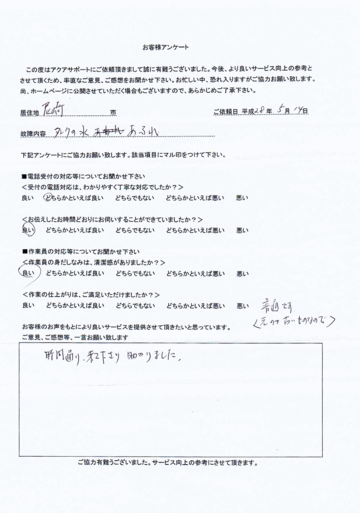 お客様アンケート
この度はアクアサポートにご依頼頂きまして誠に有難うございました。今後、より良いサービス向上の参考と
させて頂くため、率直なご意見、ご感想をお聞かせ下さい。お忙しい中、恐れ入りますがご協力お願い致します。
尚、ホームページに公開させていただく場合もございますので、あらかじめご了承下さい。
居住地 市 ご依頼日 平成28年 5月14日
故障内容 タンクの水 あふれ
下記アンケートにご協力お願い致します。該当項目にマル印をつけて下さい。
■電話受付の対応等についてお聞かせ下さい
＜受付の電話対応は、わかりやすく丁寧な対応でしたか？＞
良い どちらかといえば良い どちらでもない どちらかといえば悪い 悪い
＜お伝えしたお時間どおりにお伺いすることができていましたか？＞
良い どちらかといえば良い どちらでもない どちらかといえば悪い 悪い
■作業員の対応等についてお聞かせ下さい
＜作業員の身だしなみは、清潔感がありましたか？＞
良い どちらかといえば良い どちらでもない どちらかといえば悪い 悪い
＜作業の仕上がりは、ご満足いただけましたか？＞
良い どちらかといえば良い どちらでもない どちらかといえば悪い 悪い 普通です
お客様のお声をもとにより良いサービスを提供させて頂きたいと思っています。
ご意見、ご感想等、一言お願い致します
時間通り、来て下さり 助かりました。
ご協力有難うございました。サービス向上の参考にさせて頂きます。